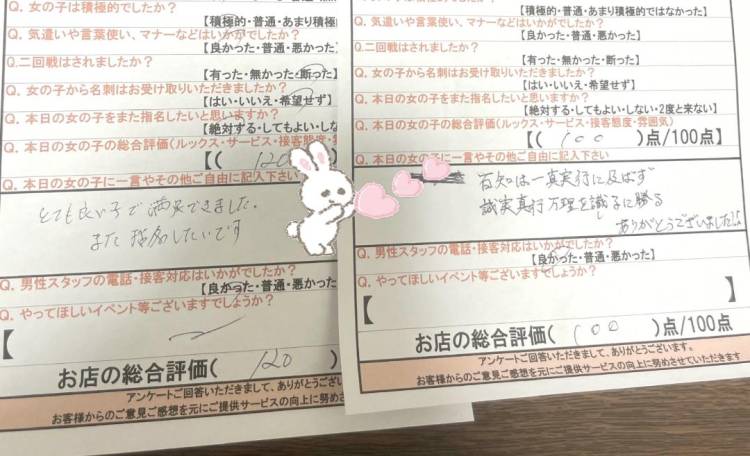 Q. 女の子は積極的でしたか？
【積極的・普通・あまり積極
Q. 気遣いや言葉使い、マナーなどはいかがでしたか？
【良かった・普通・悪かった】
Q.二回戦はされましたか？
【有った・無かった・断った】
Q. 女の子から名刺はお受け取りいただきましたか？
【はい・いいえ・希望せず】
Q. 本日の女の子をまた指名したいと思いますか？
【絶対する・してもよい・しない
Q. 本日の女の子の総合評価(ルックス・サービス・接客態度・
【( 120
Q. 本日の女の子に一言やその他ご自由に記入下さい
とても良い子で満足できました。
また指名したいです
Q. 男性スタッフの電話・接客対応はいかがでしたか？
【良かった・普通・悪かった】
Q. やってほしいイベント等ございますでしょうか？
【
お店の総合評価( 120
アンケートご回答いただきまして、ありがとうござい
お客様からのご意見ご感想を元にご提供サービスの向上に努めさせ
【積極的・普通・あまり積極的ではなかった】
Q. 気遣いや言葉使い、マナーなどはいかがでしたか？
【良かった・普通・悪かった】
Q.二回戦はされましたか？
【有った・無かった・断った】
Q. 女の子から名刺はお受け取りいただきましたか？
【はい・いいえ・希望せず】
Q. 本日の女の子をまた指名したいと思いますか？
【絶対する・してもよい・しない・2度と来ない】
Q. 本日の女の子の総合評価(ルックス・サービス・接客態度・雰囲気)
【( 100 )点/100点
Q. 本日の女の子に一言やその他ご自由に記入下さい
百知は一真実行に及ばず
誠実真行万理を識る子に勝る
ありがとうございました!!
Q. 男性スタッフの電話・接客対応はいかがでしたか？
【良かった・普通・悪かった】
Q. やってほしいイベント等ございますでしょうか？
【 】
お店の総合評価( 100 )点/100点
アンケートご回答いただきまして、ありがとうございます。
お客様からのご意見ご感想を元にご提供サービスの向上に努めさせていただきます